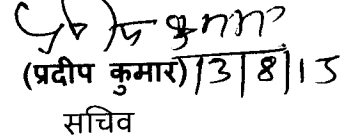 (प्रदीप कुमार) 13|8|15
सचिव